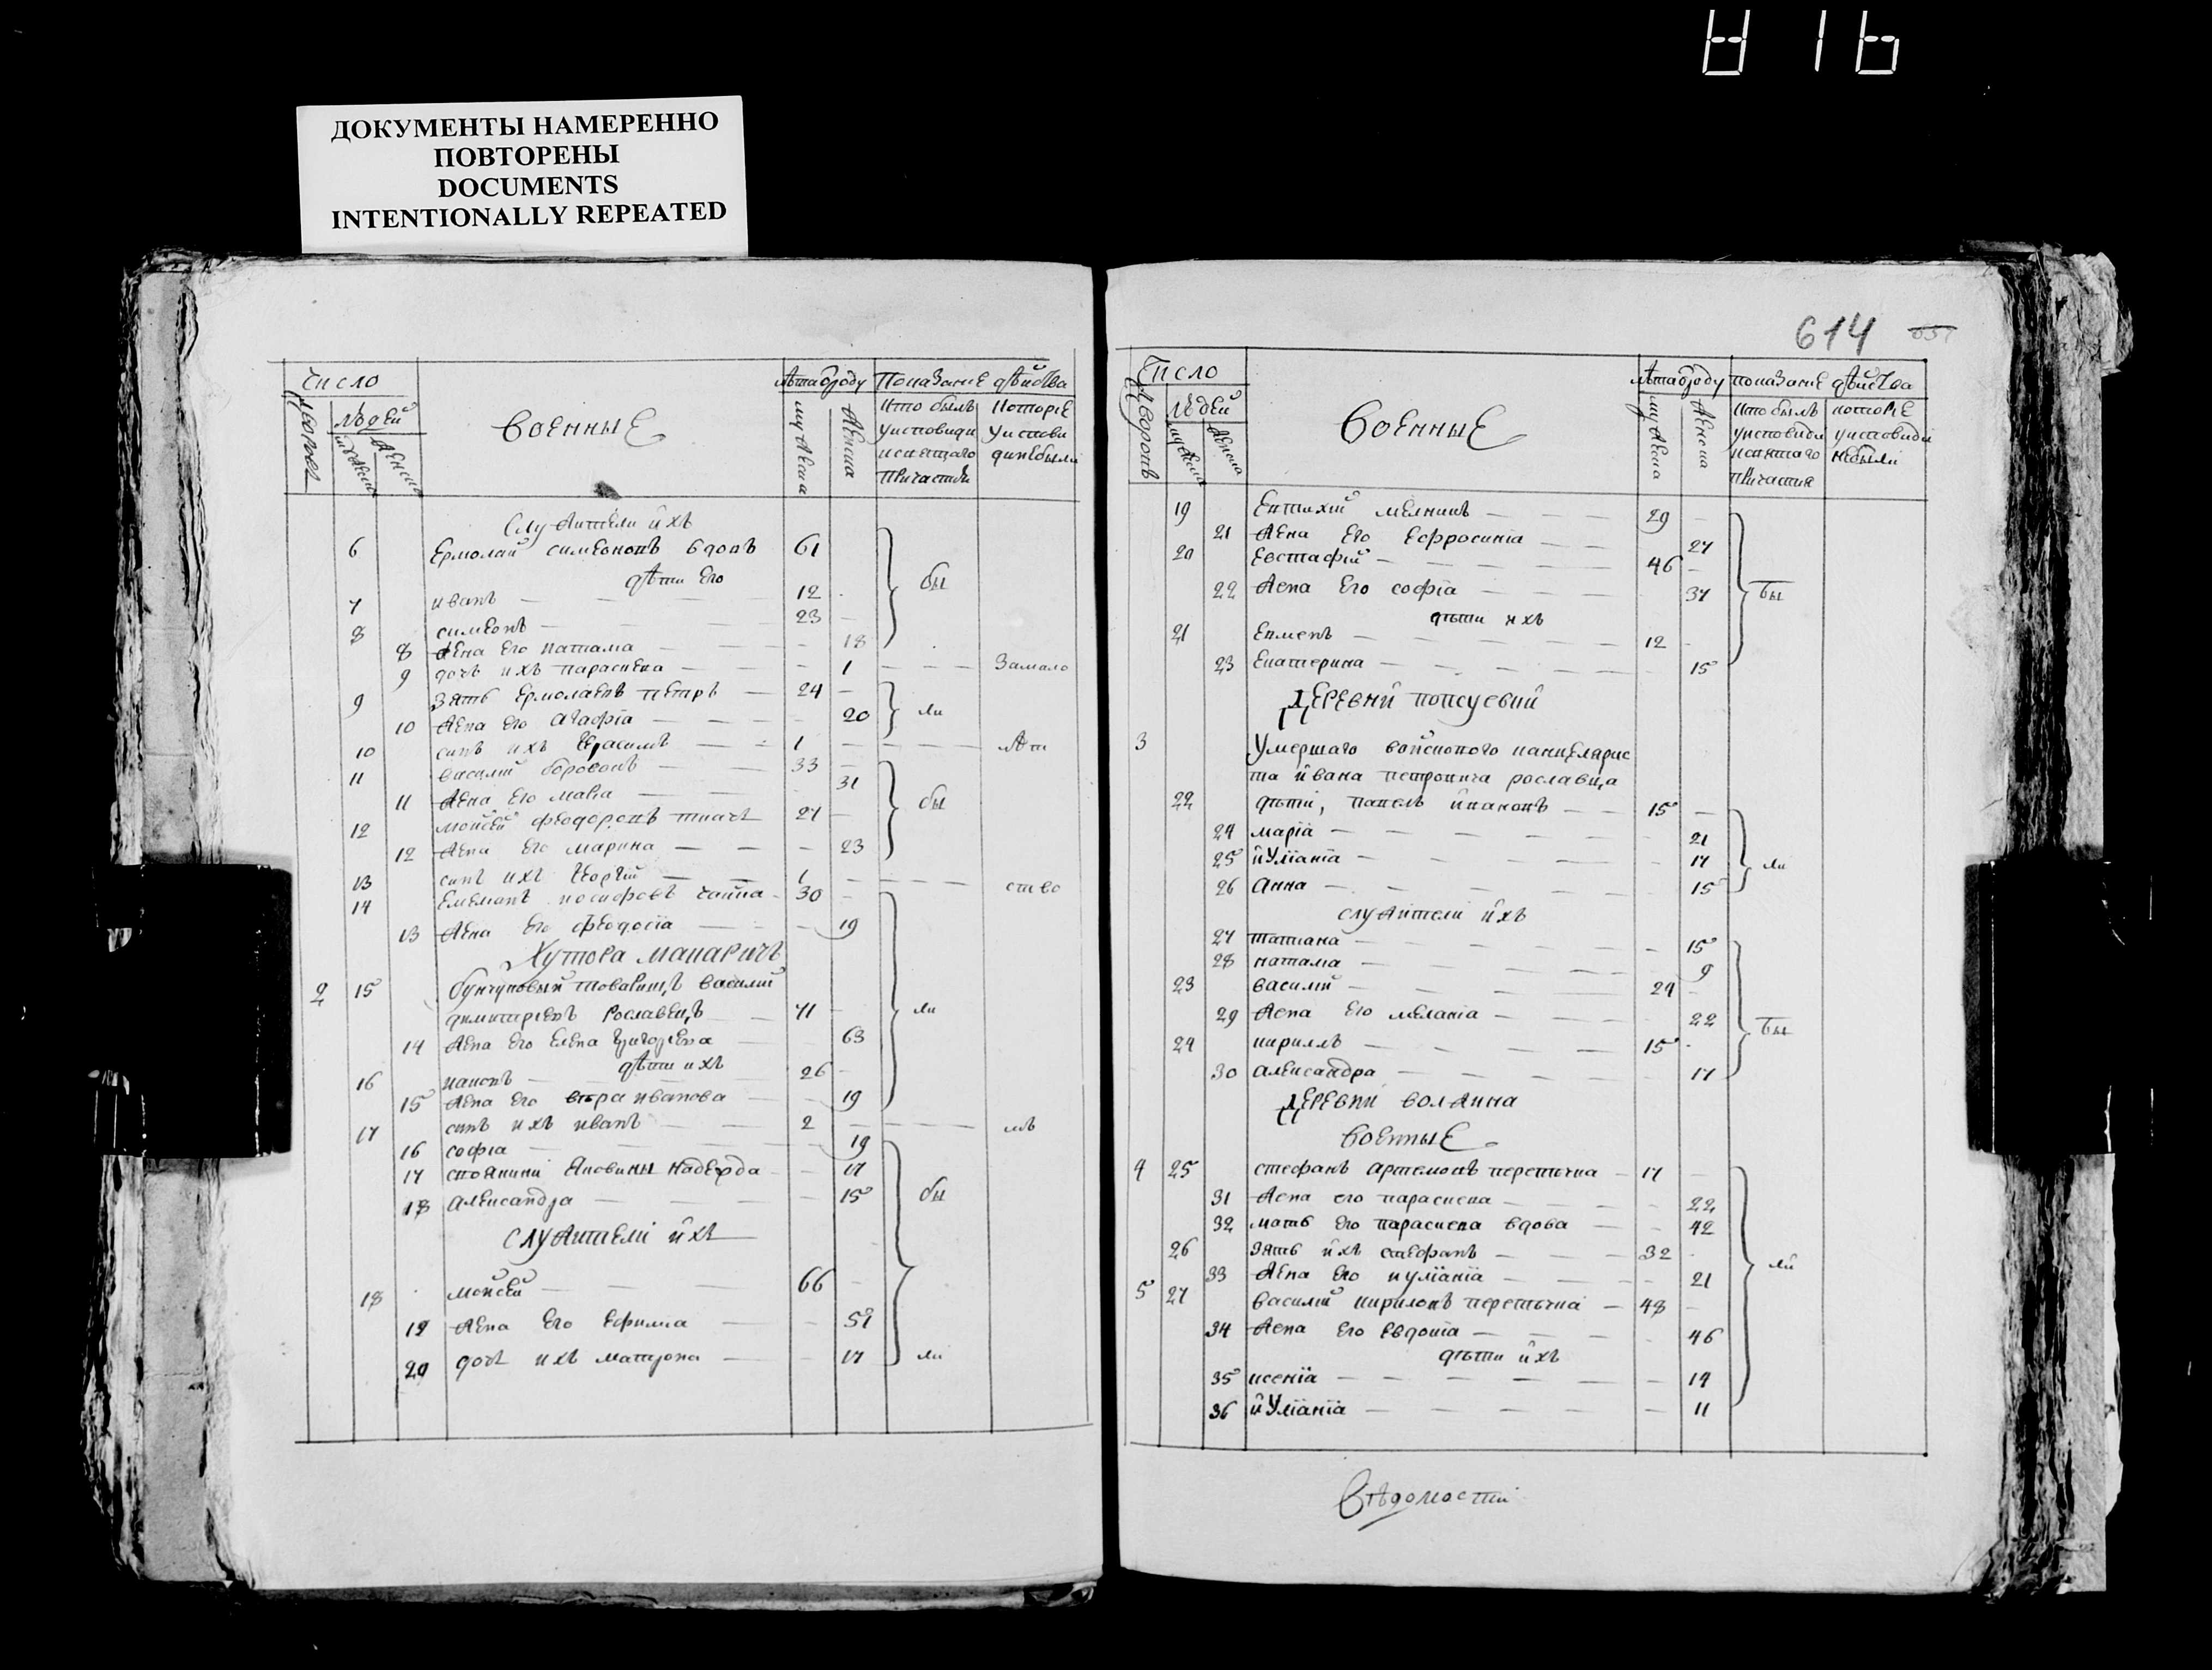 816
ДОКУМЕНТЫ НАМЕРЕННО
ПОВТОРЕНЫ
DOCUMENTS
INTENTIONALLY REPEATED
число
дворовъ
людей
мужеска
женска
военные
лѣта от роду
мужеска
женска
Показание дѣйства
кто былъ
у исповеди
и святаго
причастия
которие
у испове
ди не были
служители ихъ
6 Ермолай симеоновъ вдовъ 61 бы
дѣти его
7 иванъ 12
8 симеонъ 23
8 жена его наталиа 18
9 дочъ ихъ параскева 1 за мало
9 зять ермолаевъ петръ 24 ли
10 жена его агафіа 20
10 синъ ихъ герасимъ 1 лѣт
11 василий боровокъ 33
11 жена его мавра 31 бы
12 мойсей феодоровъ ткачъ 27
12 жена его марина 23
13 синъ ихъ георгий 1 ство
14 емелианъ иосифовъ чайка 30
13 жена его феодосіа 19
Хутора макаричъ
2 15 бунчуковый товарищъ василий
димитриевъ рославецъ 71 ли
14 жена его елена григориева 63
дѣти ихъ
16 иаковъ 26
15 жена его вѣра иванова 19
17 синъ ихъ иванъ 2 мъ
16 софіа 19
17 своячини яковины надежда 17
18 александра 15 бы
служители ихъ
18 мойсей 66
19 жена его ефимиа 57
20 дочъ ихъ матрона 17 ли
614
число
дворовъ
людей
мужеска
женска
военные
лѣта от роду
мужеска
женска
показание дѣйства
кто былъ
у исповеди
и святаго
причастия
которие
у исповеди
не были
19 евтихий мелникъ 29
21 жена его ефросиніа 27
20 евстафий 46
22 жена его софіа 37 бы
дѣти ихъ
21 евменъ 12
23 екатерина 15
деревни попсуевки
3 умершаго войскового канцелярис
та ивана петровича рославца
22 дѣти, павелъ 15
24 маріа 21
25 иуліаніа 17 ли
26 анна 15
служители ихъ
27 татиана 15
28 наталиа 9
23 василий 24
29 жена его меланіа 22 бы
24 кириллъ 15
30 александра 17
деревни волжина
военные
4 25 стефанъ артемовъ перетичка 17
31 жена его параскева 22
32 мать его параскева вдова 42
26 зять ихъ стефанъ 32 ли
33 жена его иуліаніа 21
5 27 василий кириловъ перетичка 48
34 жена его евдокіа 46
дѣти ихъ
35 ксеніа 14
36 иуліаніа 11
вѣдомости